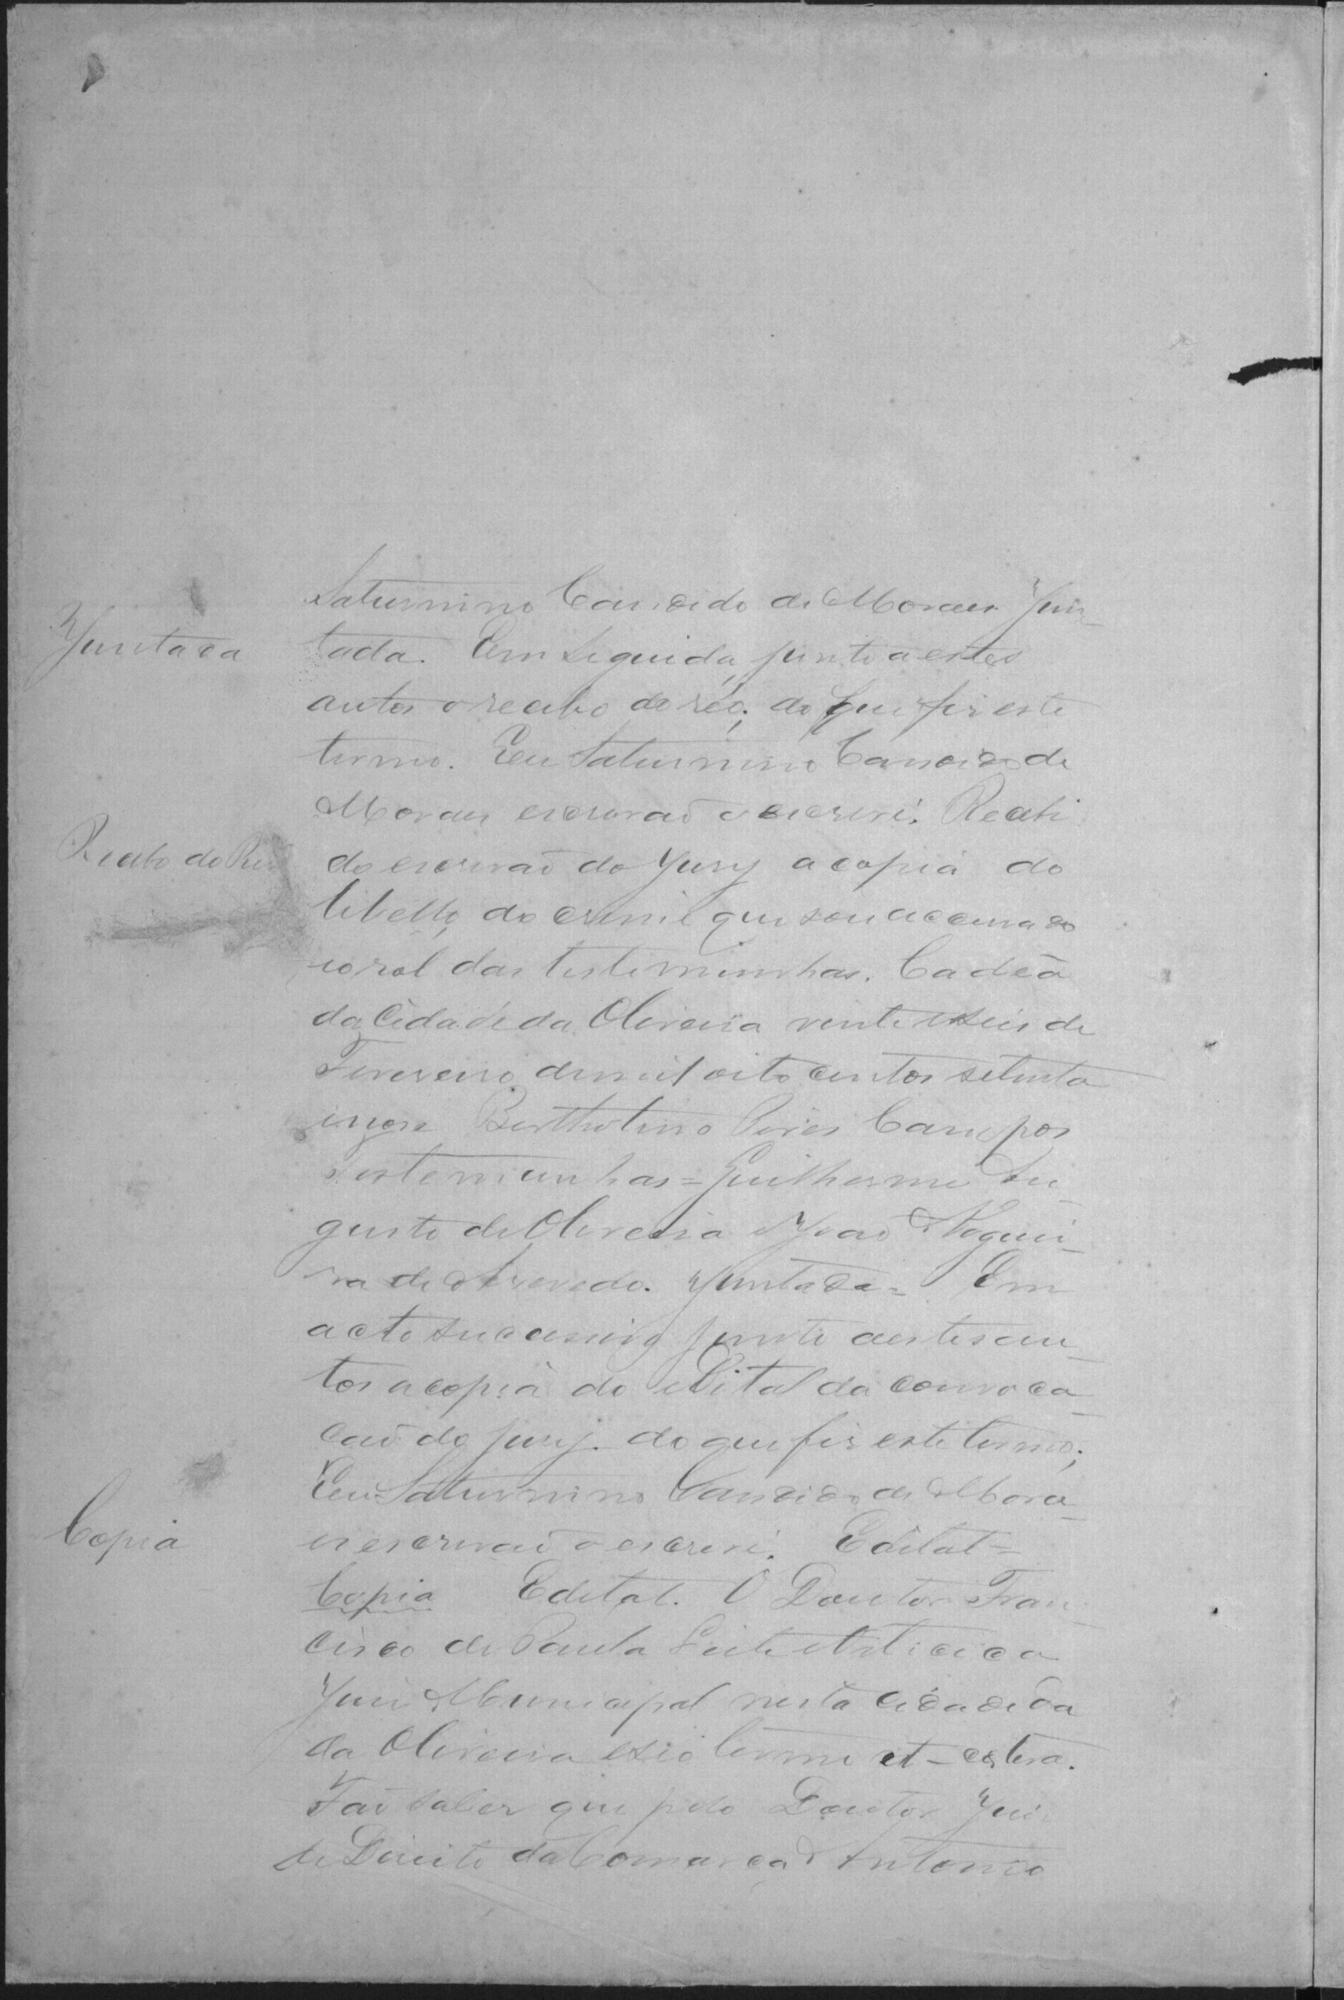 Saturnino Candido de Moraes Jun-
Juntada
tada. Em seguida, junto a estes
autos o recibo do réo; do que fiz este
termo. Eu Saturnino Candido de
Moraes escrivaõ o escrevi. Recebi
Recibo do Reu
do escrivaõ do Jury a copia do
libello do crime que sou accusado
e o rol das testimunhas. Cadêa
da Cidade da Oliveira vinte e seis de
Fevereiro de mil oito centos setenta
Bertholino Pires Campos
Testemunhas = Guilherme Au-
gusto de Oliveira e Joaõ Noguei-
ra de Asevedo. Juntada = Em
acto sucessivo junto a estes au-
tos a copia do edital da convoca-
caõ do jury. do que fiz este termo;
Eu Saturnino Candido de Mora-
es escrivaõ o escrevi. Edital =
Copia
Copia Edital. O Doutor Fran-
cisco de Paula Leite e Oiticica
Juiz Municipal nesta cidade da
da Oliveira e seo termo et-cetera.
Faõ saber que pelo Doutor Juiz
de Direito da Comarca Antonio